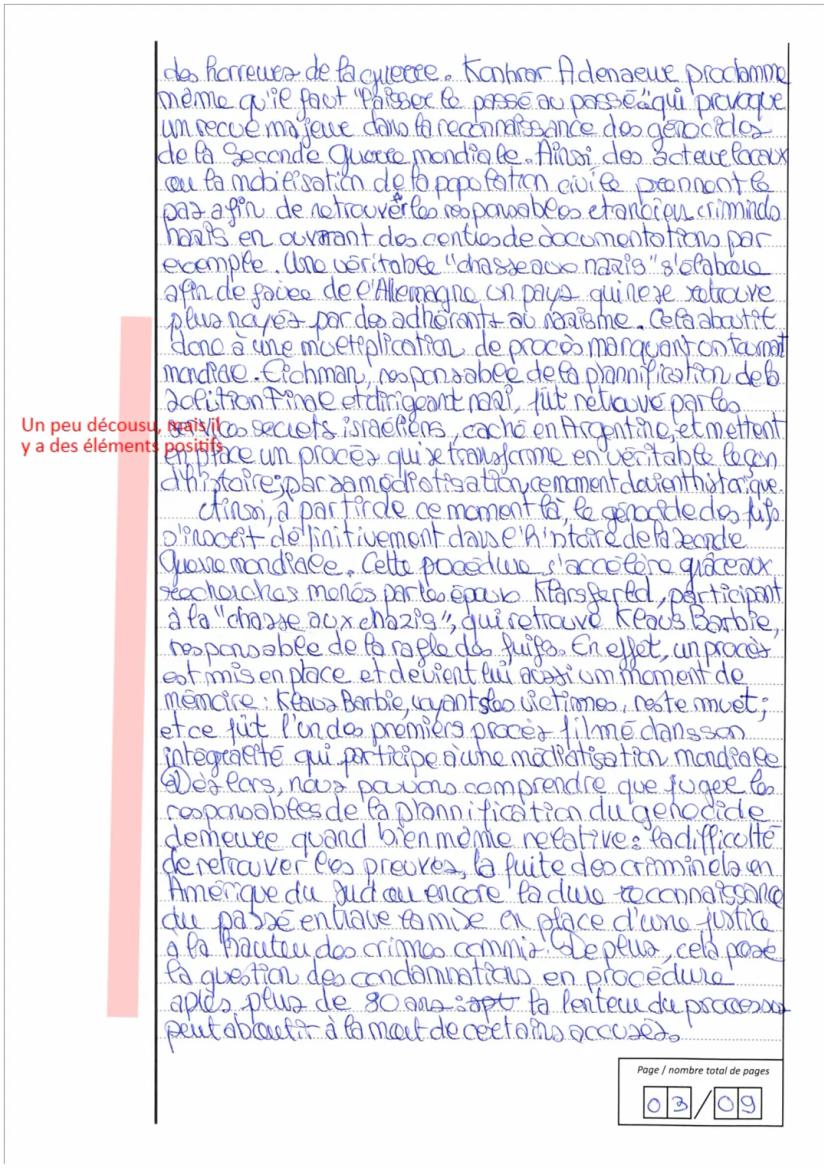 des horreurs de la guerre. Konhrar Adenaeur proclamme
même qu'il faut "laisser le passé au passé" qui provoque
un recul majeur dans la reconnaissance des génocides
de la Seconde Guerre mondiale. Ainsi des acteurs locaux
ou la mobilisation de la population civile prennent le
pas afin de retrouver les responsables et anciens criminels
nazis en ouvrant des centres de documentations par
exemple. Une véritable "chasse aux nazis" s'élabore
afin de faire de l'Allemagne un pays qui ne se retrouve
plus noyés par des adhérants au nazisme. Cela aboutit
donc à une multiplication de procès marquant un tournant
mondiae. Eichman, responsable de la plannification de la
solution Finale et dirigeant nazi, fût retrouvé par les
Un peu décousu, mais il
y a des éléments positifs
services secrets israéliens, caché en Argentine, et mettent
en place un procès qui se transforme en véritable leçon
d'histoire; par sa médiatisation, ce moment devient historique.
Ainsi, à partir de ce moment là, le génocide des juifs
s'inscrit définitivement dans l'histoire de la seconde
Guerre mondiale. Cette procédure s'accélère grâce aux
recherches menés par les époux Klarsfereld, participant
à la "chasse aux nazis", qui retrouve Klaus Barbie,
responsable de la rafle des juifs. En effet, un procès
est mis en place et devient lui aussi un moment de
mémoire : Klaus Barbie, voyant ses victimes, reste muet ;
et ce fût l'un des premiers procès filmé dans son
intégralité qui participe à une médiatisation mondiale
Dès lors, nous pouvons comprendre que juger les
responsables de la plannification du génocide
demeure quand bien même relative : la difficulté
de retrouver les preuves, la fuite des criminels en
Amérique du Sud ou encore la dure reconnaissance
du passé entrave la mise en place d'une justice
à la hauteur des crimes commis. De plus, cela pose
la question des condamnations en procédure
après plus de 80 ans : la lenteur du processus
peut aboutir à la mort de certains accusés.
Page / nombre total de pages
03/09